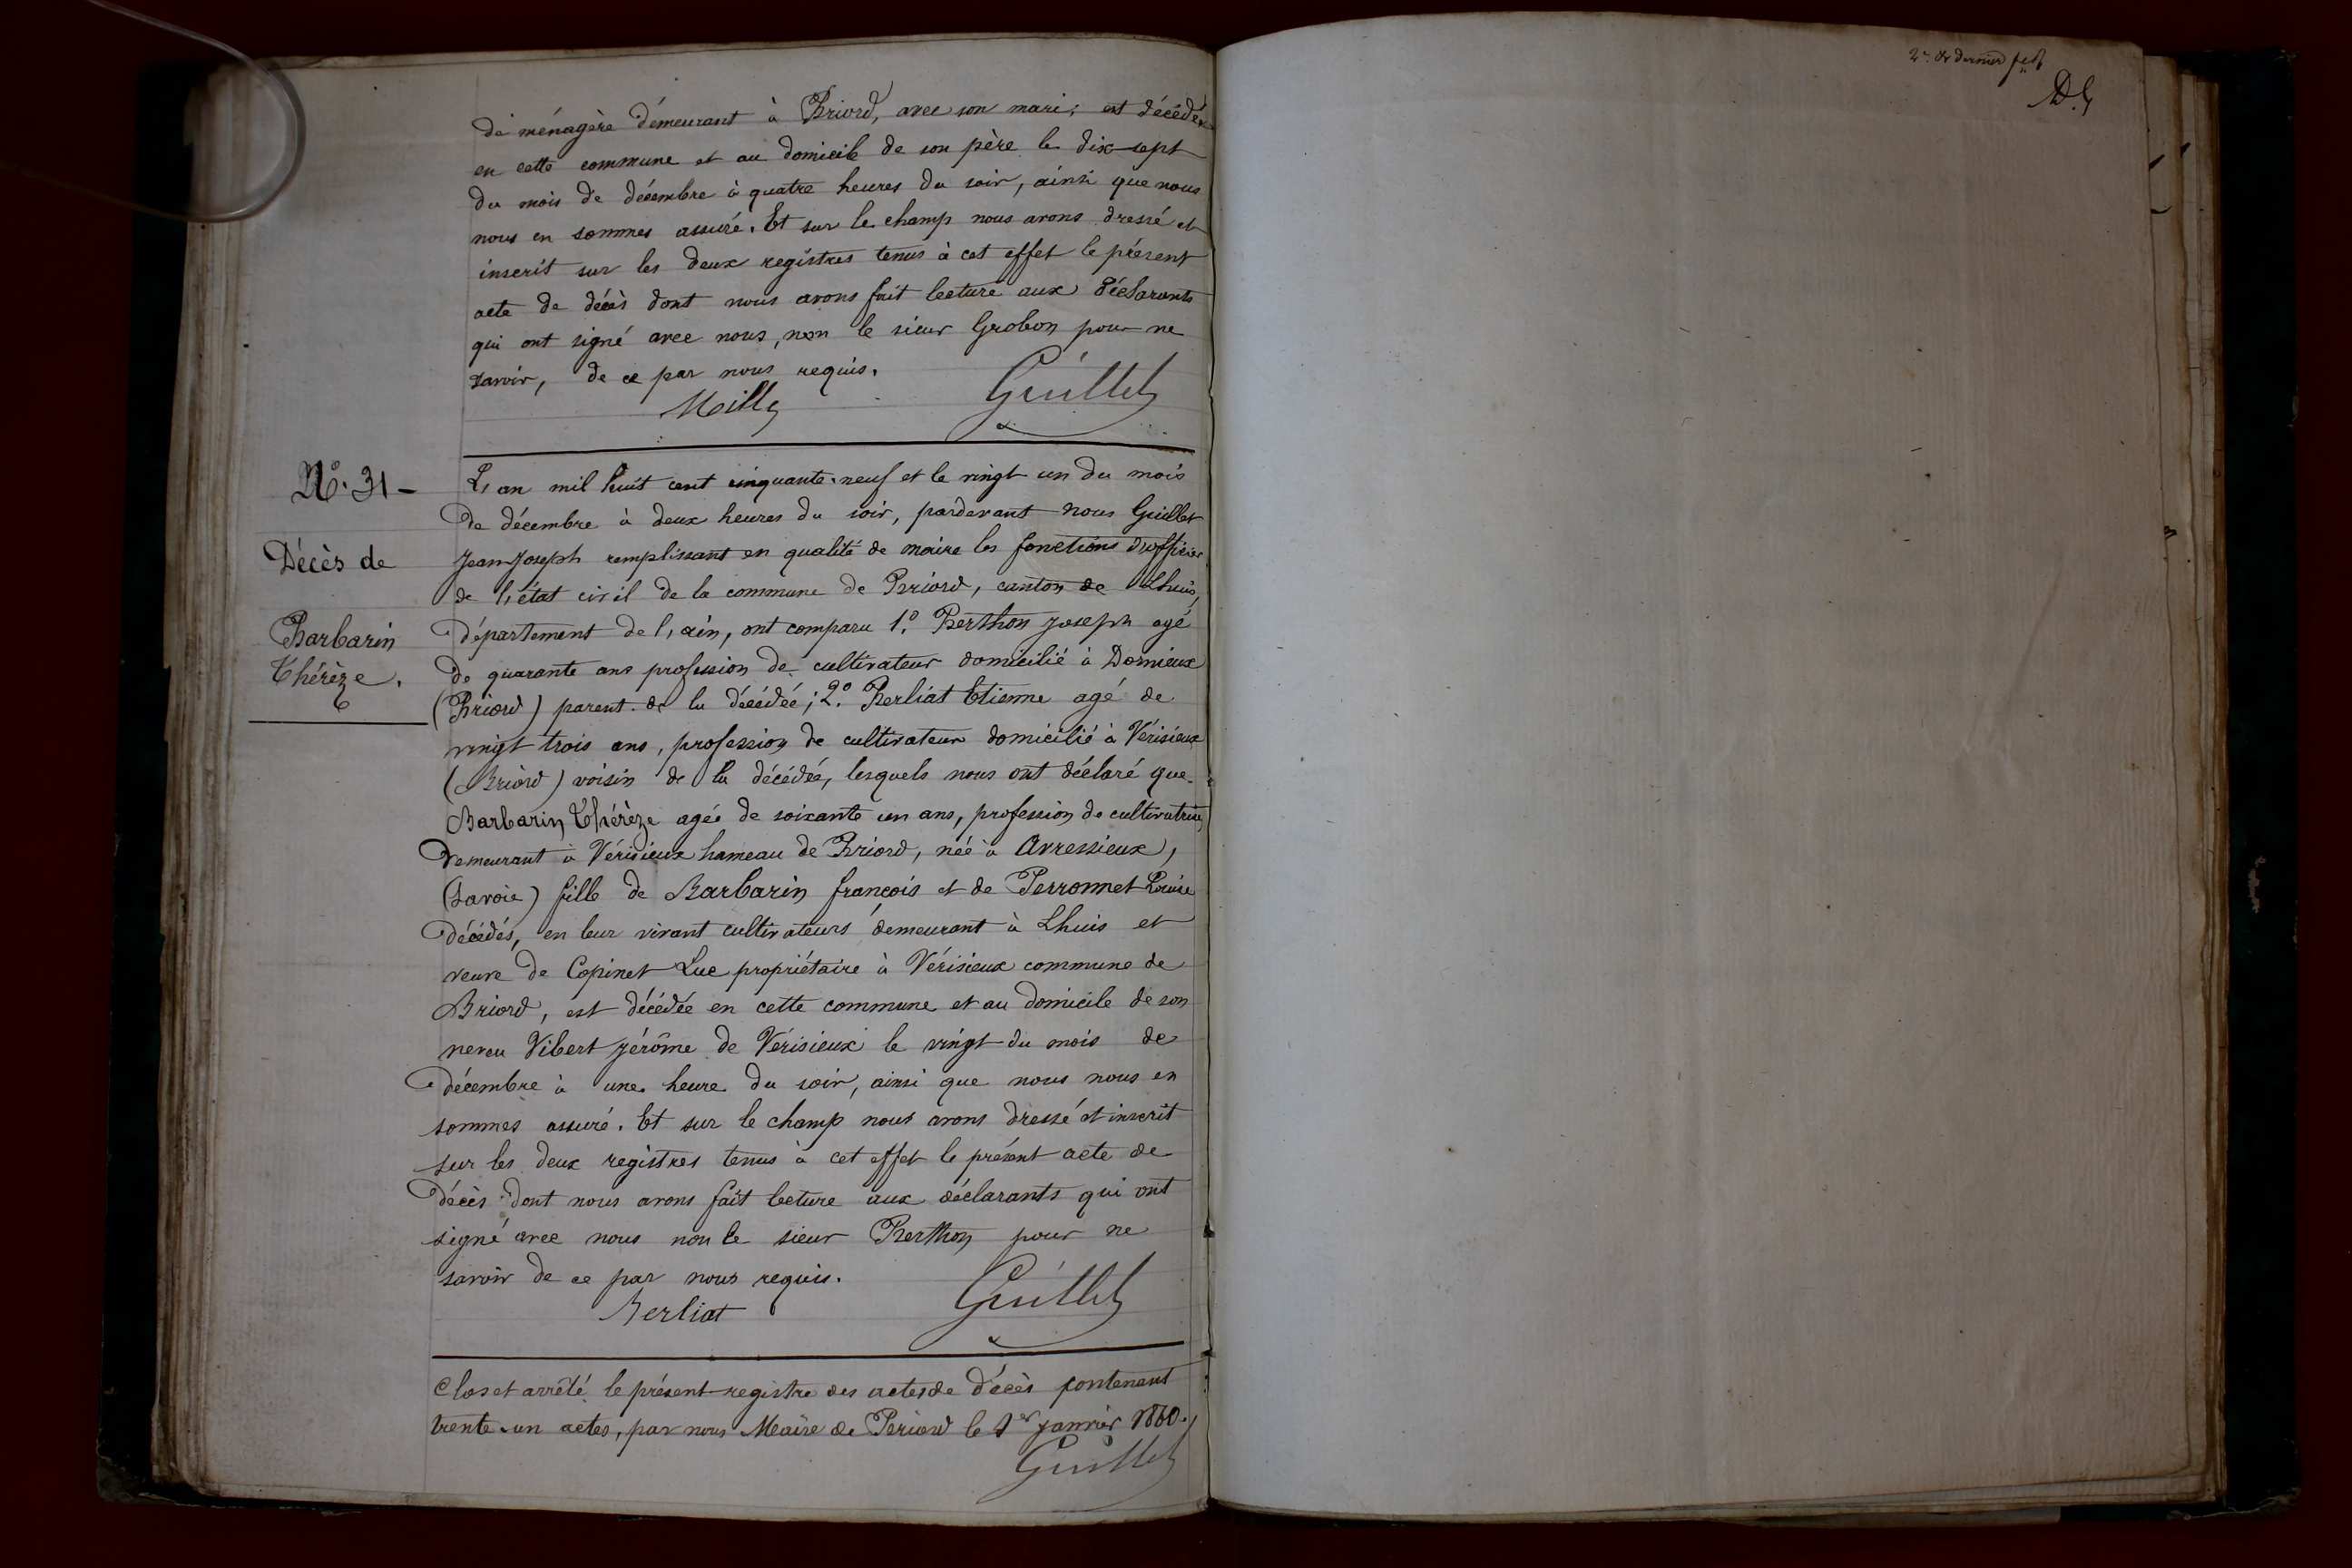 de ménagère demeurant à Briord, avec son mari; est décédée
en cette commune et au domicile de son père le dix-sept
du mois de décembre à quatre heures du soir, ainsi que nous
nous en sommes assuré. Et sur le champ nous avons dressé et
inscrit sur les deux registres tenus à cet effet le présent
acte de décès dont nous avons fait lecture aux déclarants
qui ont signé avec nous, non le sieur Grobon pour ne
savoir, de ce par nous requis.
Milly Guillet
N°. 31 -
Décès de
Barbarin
Thérèze.
L'an mil huit cent cinquante-neuf et le vingt un du mois
de décembre à deux heures du soir, pardevant nous Guillet
Jean Joseph remplissant en qualité de maire les fonctions d'officier
de l'état civil de la commune de Briord, canton de Lhuis,
département de l'ain, ont comparu 1.° Berthon Joseph agé
de quarante ans profession de cultivateur domicilié à Dornieux
(Briord) parent de la décédée; 2.° Berliat Etienne agé de
vingt trois ans, profession de cultivateur domicilié à Vérisieux
(Briord) voisin de la décédée, lesquels nous ont déclaré que
Barbarin Thérèze agée de soixante un ans, profession de cultivatrice,
demeurant à Vérisieux hameau de Briord, née à Avressieux,
(Savoie) fille de Barbarin françois et de Perronnet Louise
décédés, en leur vivant cultivateurs demeurant à Lhuis et
veuve de Copinet Luc propriétaire à Vérisieux commune de
Briord, est décédée en cette commune et au domicile de son
neveu Vibert Jérôme de Vérisieux le vingt du mois de
décembre à une heure du soir, ainsi que nous nous en
sommes assuré. Et sur le champ nous avons dressé et inscrit
sur les deux registres tenus à cet effet le présent acte de
décès dont nous avons fait lecture aux déclarants qui ont
signé avec nous non le sieur Berthon pour ne
savoir de ce par nous requis.
Berliat Guillet
Clos et arrêté le présent registre des actes de décès contenant
trente-un actes, par nous Maire de Briord le 1er Janvier 1860.
Guillet
2e & dernier